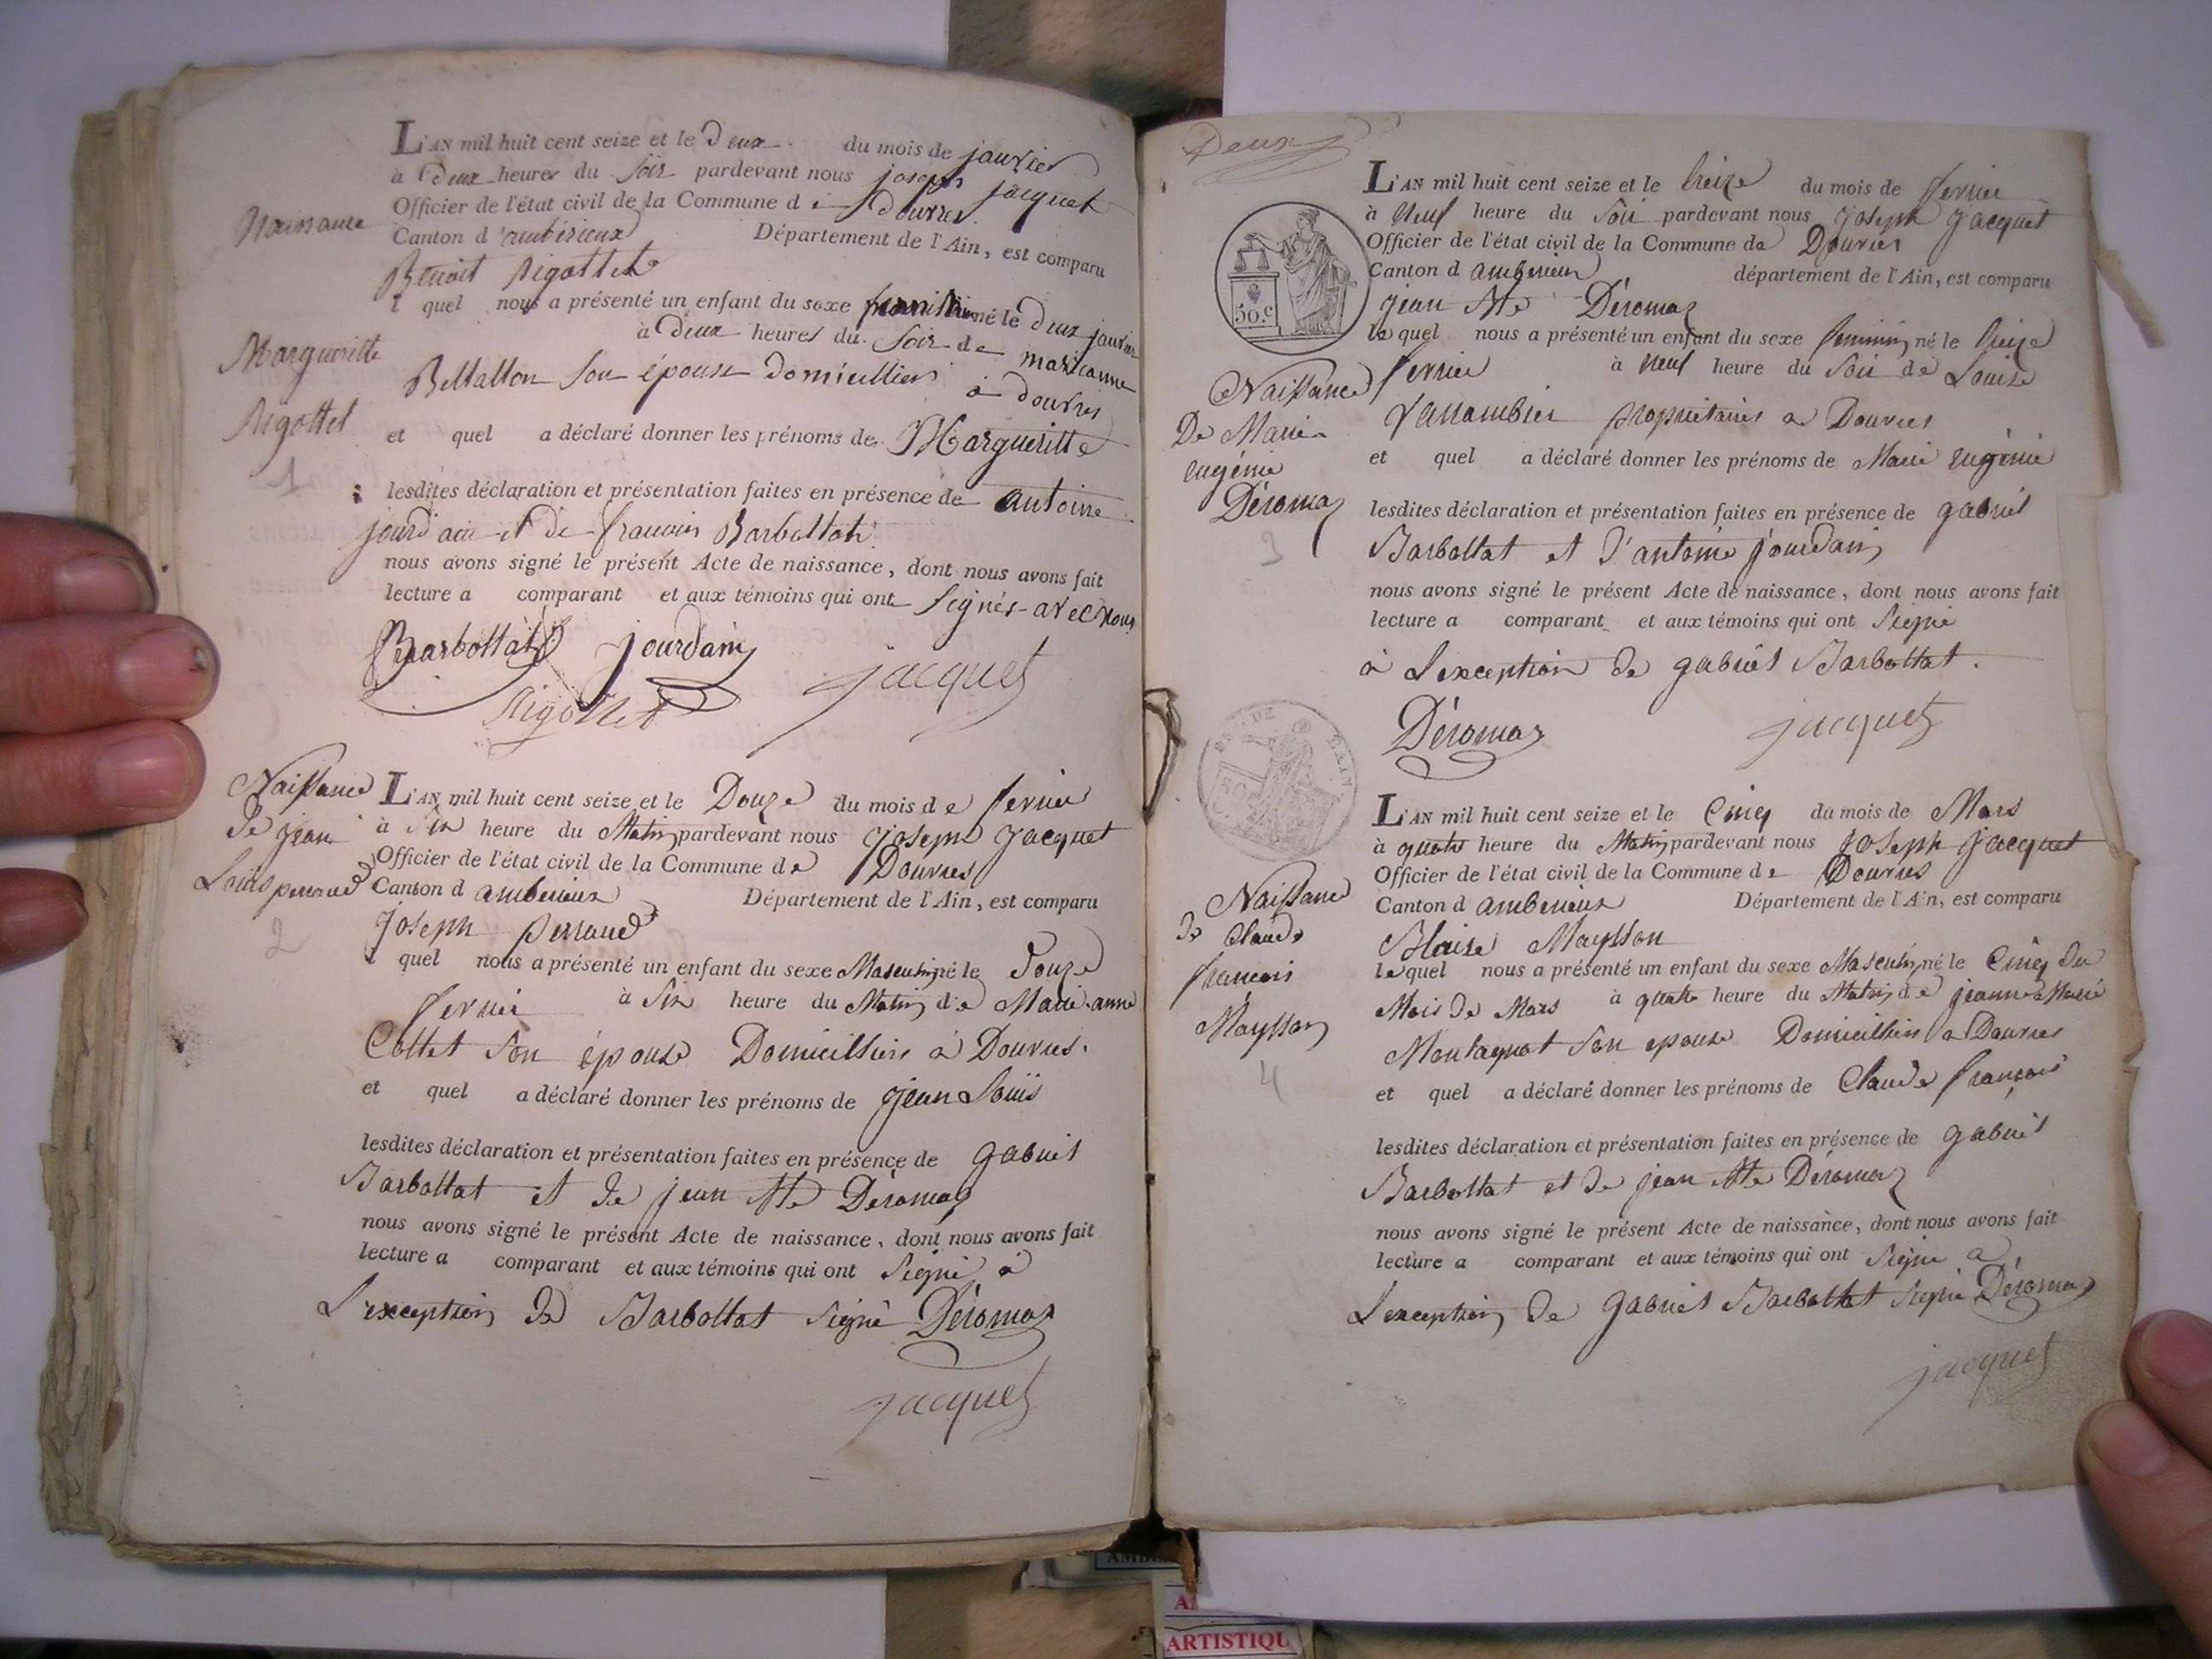 Naissance
Margueritte
Rigottet
1
L'AN mil huit cent seize et le Deux du mois de janvier
à Deux heures du soir pardevant nous joseph jacquet
Officier de l'état civil de la Commune de Douvres
Canton d'ambérieux Département de l'Ain, est comparu
Benoit Rigottet
l quel nous a présenté un enfant du sexe né le deux janvier
à Deux heures du soir de marianne
son épouse Domicilliers à douvres
et quel a déclaré donner les prénoms de Margueritte
lesdites déclaration et présentation faites en présence de antoine
jourdain et de francois Barbottat
nous avons signé le présent Acte de naissance, dont nous avons fait
lecture a comparant et aux témoins qui ont signés avec nous
Barbottat jourdain
Rigottet jacquet
Naissance
de jean
Louis perraud
2
L'AN mil huit cent seize et le Douze du mois de fevrier
à six heure du Matin pardevant nous joseph jacquet
Officier de l'état civil de la Commune de Douvres
Canton d ambérieux Département de l'Ain, est comparu
joseph perraud
l quel nous a présenté un enfant du sexe Masculin né le Douze
fevrier à six heure du Matin de Marie anne
Collet son épouse Domicilliers à Douvres.
et quel a déclaré donner les prénoms de jean Louis
lesdites déclaration et présentation faites en présence de gabriel
Barbottat et de jean Mte Déromas
nous avons signé le présent Acte de naissance, dont nous avons fait
lecture a comparant et aux témoins qui ont signé à
L'exception de Barbottat signé Déromas
jacquet
Deux
50.c
Naissance
De Marie
eugénie
Déromas
3
L'AN mil huit cent seize et le treize du mois de fevrier
à neuf heure du soir pardevant nous joseph jacquet
Officier de l'état civil de la Commune de Douvres
Canton d ambérieux département de l'Ain, est comparu
jean Mte Déromas
lequel nous a présenté un enfant du sexe feminin né le treize
fevrier à neuf heure du soir de Louise
propriétaires à Douvres
et quel a déclaré donner les prénoms de Marie eugénie
lesdites déclaration et présentation faites en présence de gabriel
Barbottat et d'antoine jourdain
nous avons signé le présent Acte de naissance, dont nous avons fait
lecture a comparant et aux témoins qui ont signé
à L'exception de gabriel Barbottat.
Déromas jacquet
Naissance
de Claude
francois
Maysson
4
L'AN mil huit cent seize et le Cinq du mois de Mars
à quatre heure du Matin pardevant nous joseph jacquet
Officier de l'état civil de la Commune de Douvres
Canton d ambérieux Département de l'Ain, est comparu
Blaise Maysson
lequel nous a présenté un enfant du sexe Masculin né le Cinq du
Mois de Mars à quatre heure du Matin de jeanne Marie
Montagnat son épouse Domicilliers à Douvres
et quel a déclaré donner les prénoms de Claude françois
lesdites déclaration et présentation faites en présence de gabriel
Barbottat et de jean Mte Déromas
nous avons signé le présent Acte de naissance, dont nous avons fait
lecture a comparant et aux témoins qui ont signé à
L'exception de gabriel Barbottat signé Déromas
jacquet
ARTISTIQU